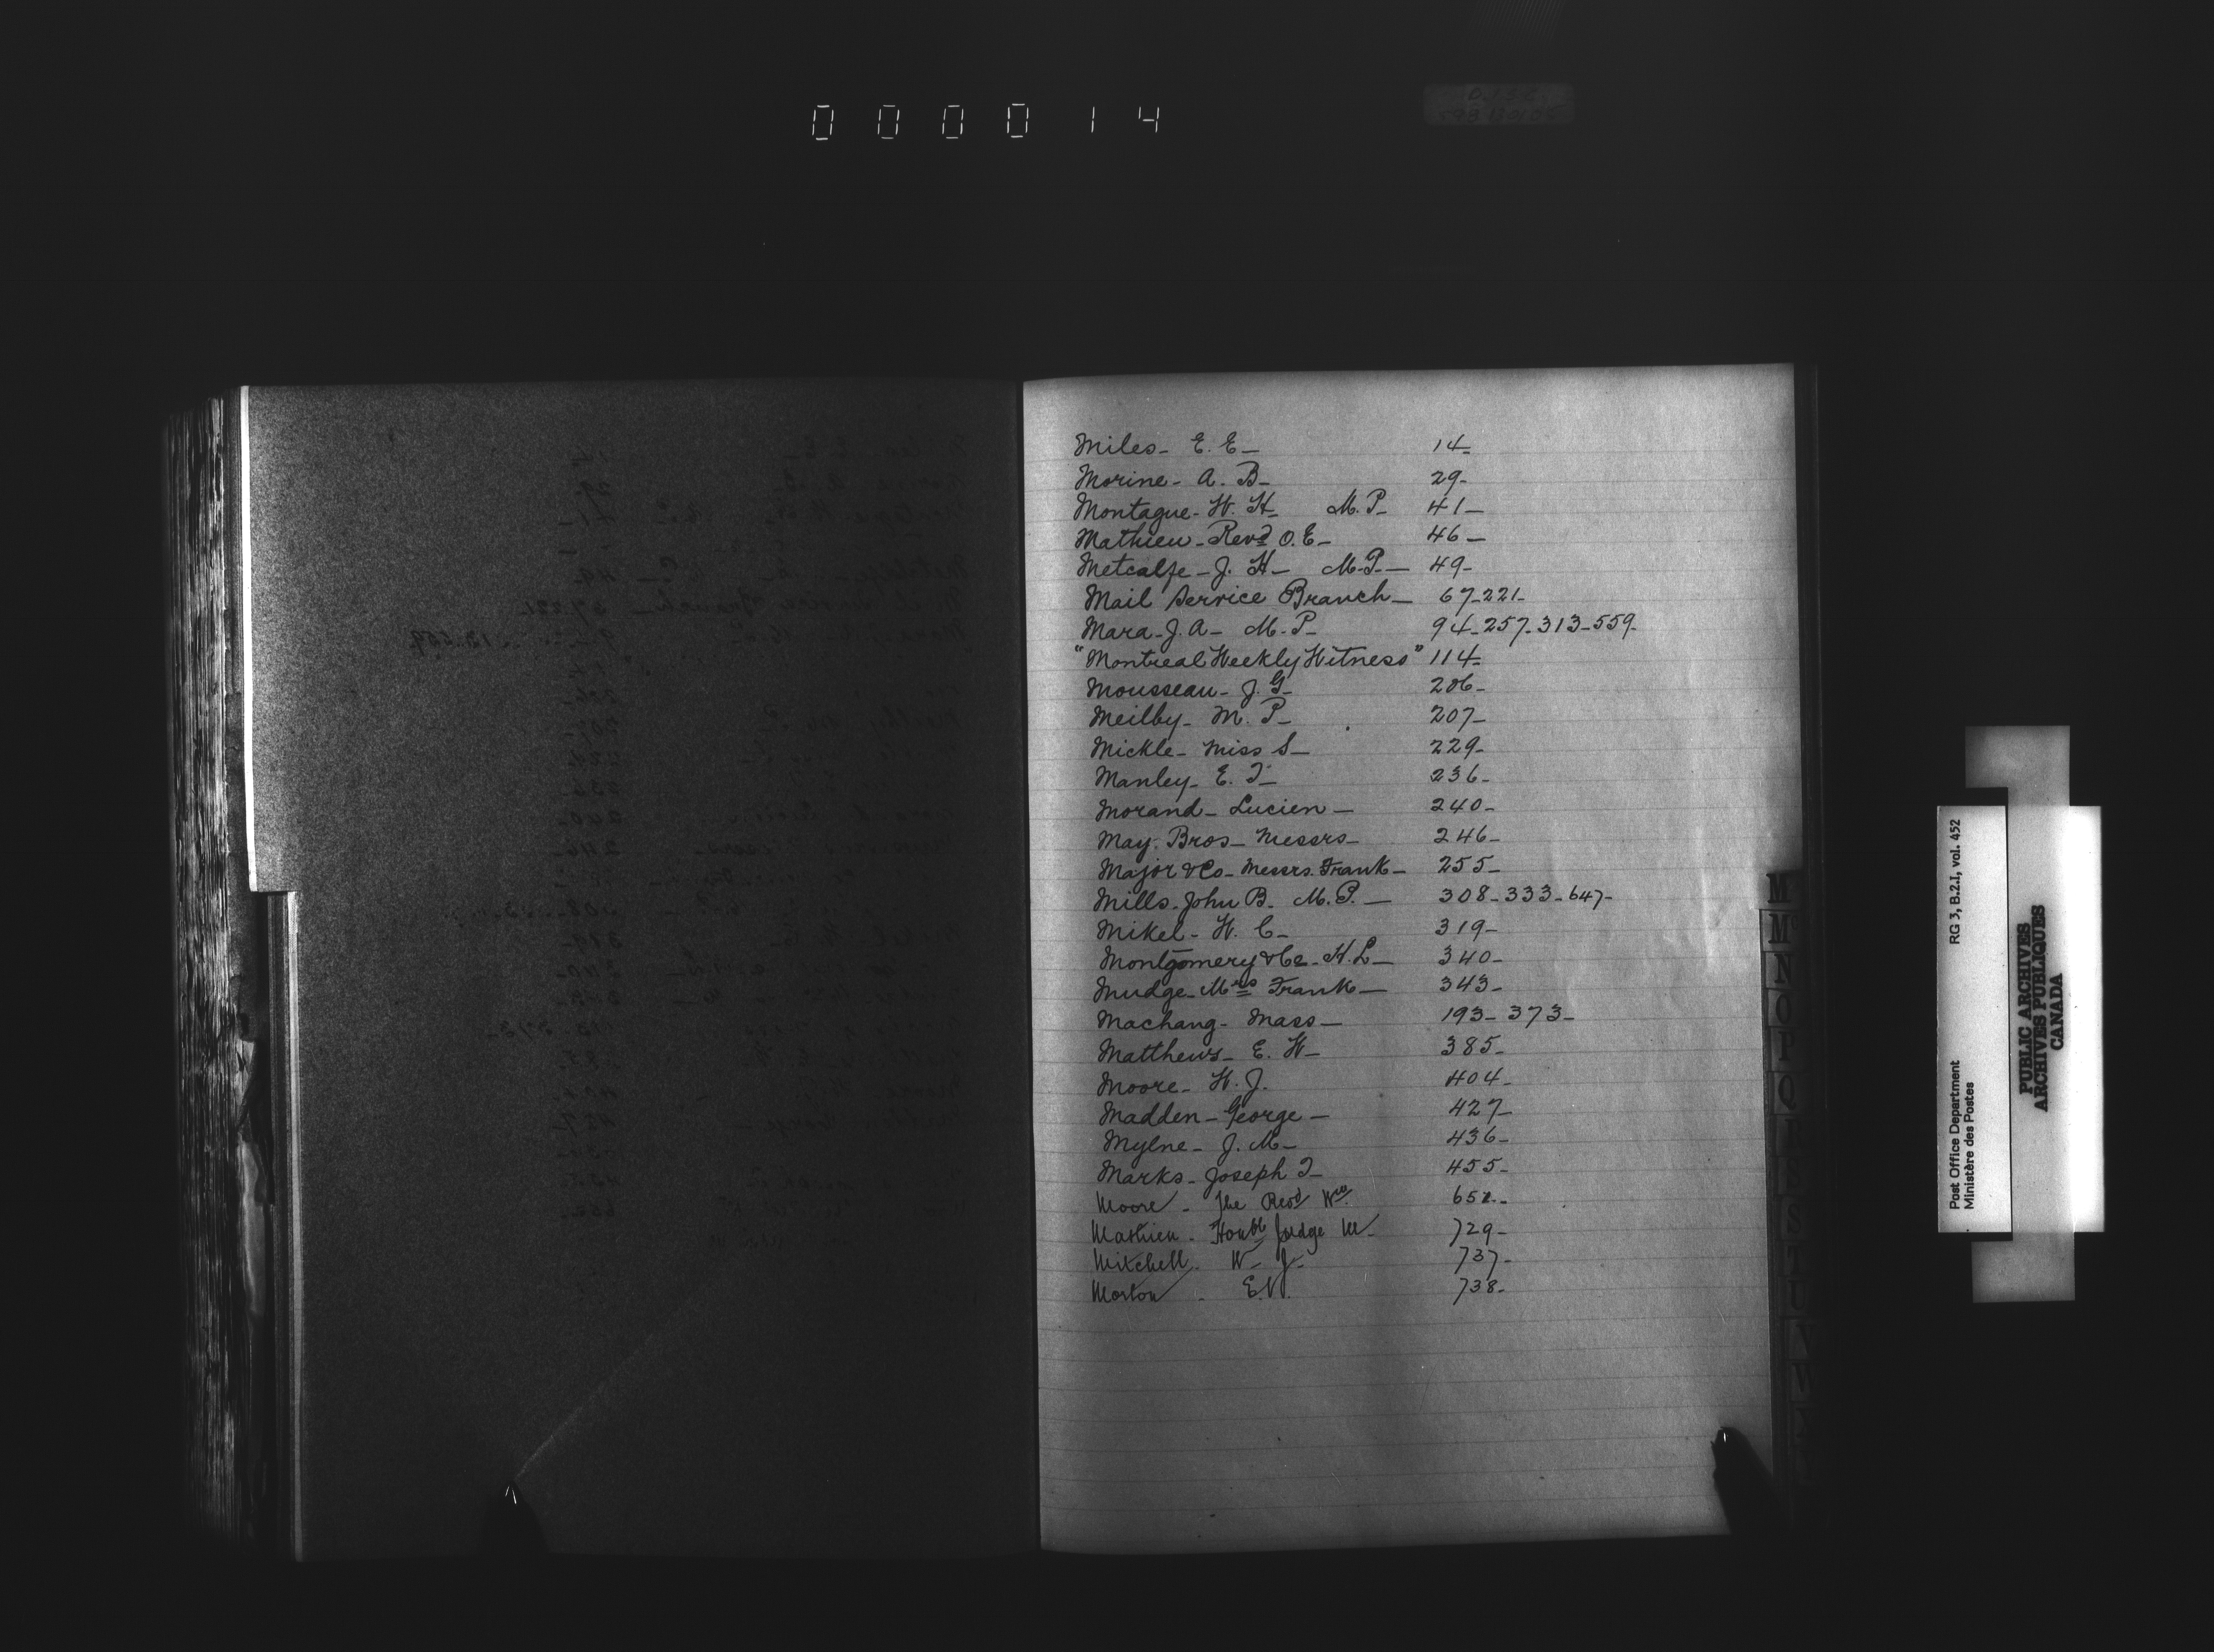 000014
Miles - E. E - 14 -
Morine - A. B - 29 -
Montague - W. H - M. P - 41 -
Mathieu - Revd O. E - 46 -
Metcalfe - J. H - M. P. - 49 -
Mail Service Branch - 67 - 221 -
Mara - J. A - M. P - 94 - 257 - 313 - 559 -
"Montreal Weekly Witness" 114 -
Mousseau - J. G - 206 -
Meilby - M. P - 207 -
Mickle - Miss S - 229 -
Manley - E. T - 236 -
Morand - Lucien - 240 -
May Bros - Messrs - 246 -
Major & Co - Messrs. Frank - 255 -
Mills - John B. M. P. - 308 - 333 - 647 -
Mikel - W. C - 319 -
Montgomery & Co - H. L - 340 -
Mudge - Mrs Frank - 343 -
Machang - Mass - 193 - 373 -
Matthews - E. W - 385 -
Moore - H. J. 404 -
Madden - George - 427 -
Mylne - J. M - 436 -
Marks - Joseph T - 455 -
Moore - The Revd Wm. 652 -
Mathieu - Honbl Judge M - 729 -
Mitchell - W - J - 737 -
Morton - E. 738 -
M
M
N
O
P
Q
S
T
U
V
W
Post Office Department RG 3, B.2.I, vol. 452
Ministère des Postes
PUBLIC ARCHIVES
ARCHIVES PUBLIQUES
CANADA